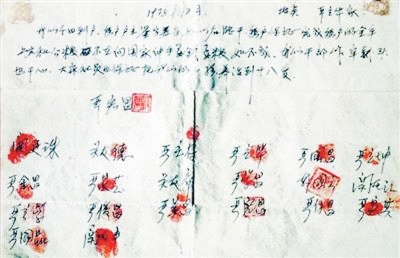 1978年12月 地点 严立华家
我们分田到户,每户户主签字盖章,如以后能干,每户保证完成每户的全年
上交和公粮,不在向国家伸手要钱要粮,如不成,我们干部作牢刹
头也干心,大家社员也保证把我们的小孩养活到十八岁
严宏昌
关廷珠 关友德 严立符 严立华 严国昌 严立坤
严金昌 严家芝 关友章 严学昌 韩国云 关友江
严立学 严俊昌 严美昌 严宏昌 严付昌 严家其
严国品 关友申